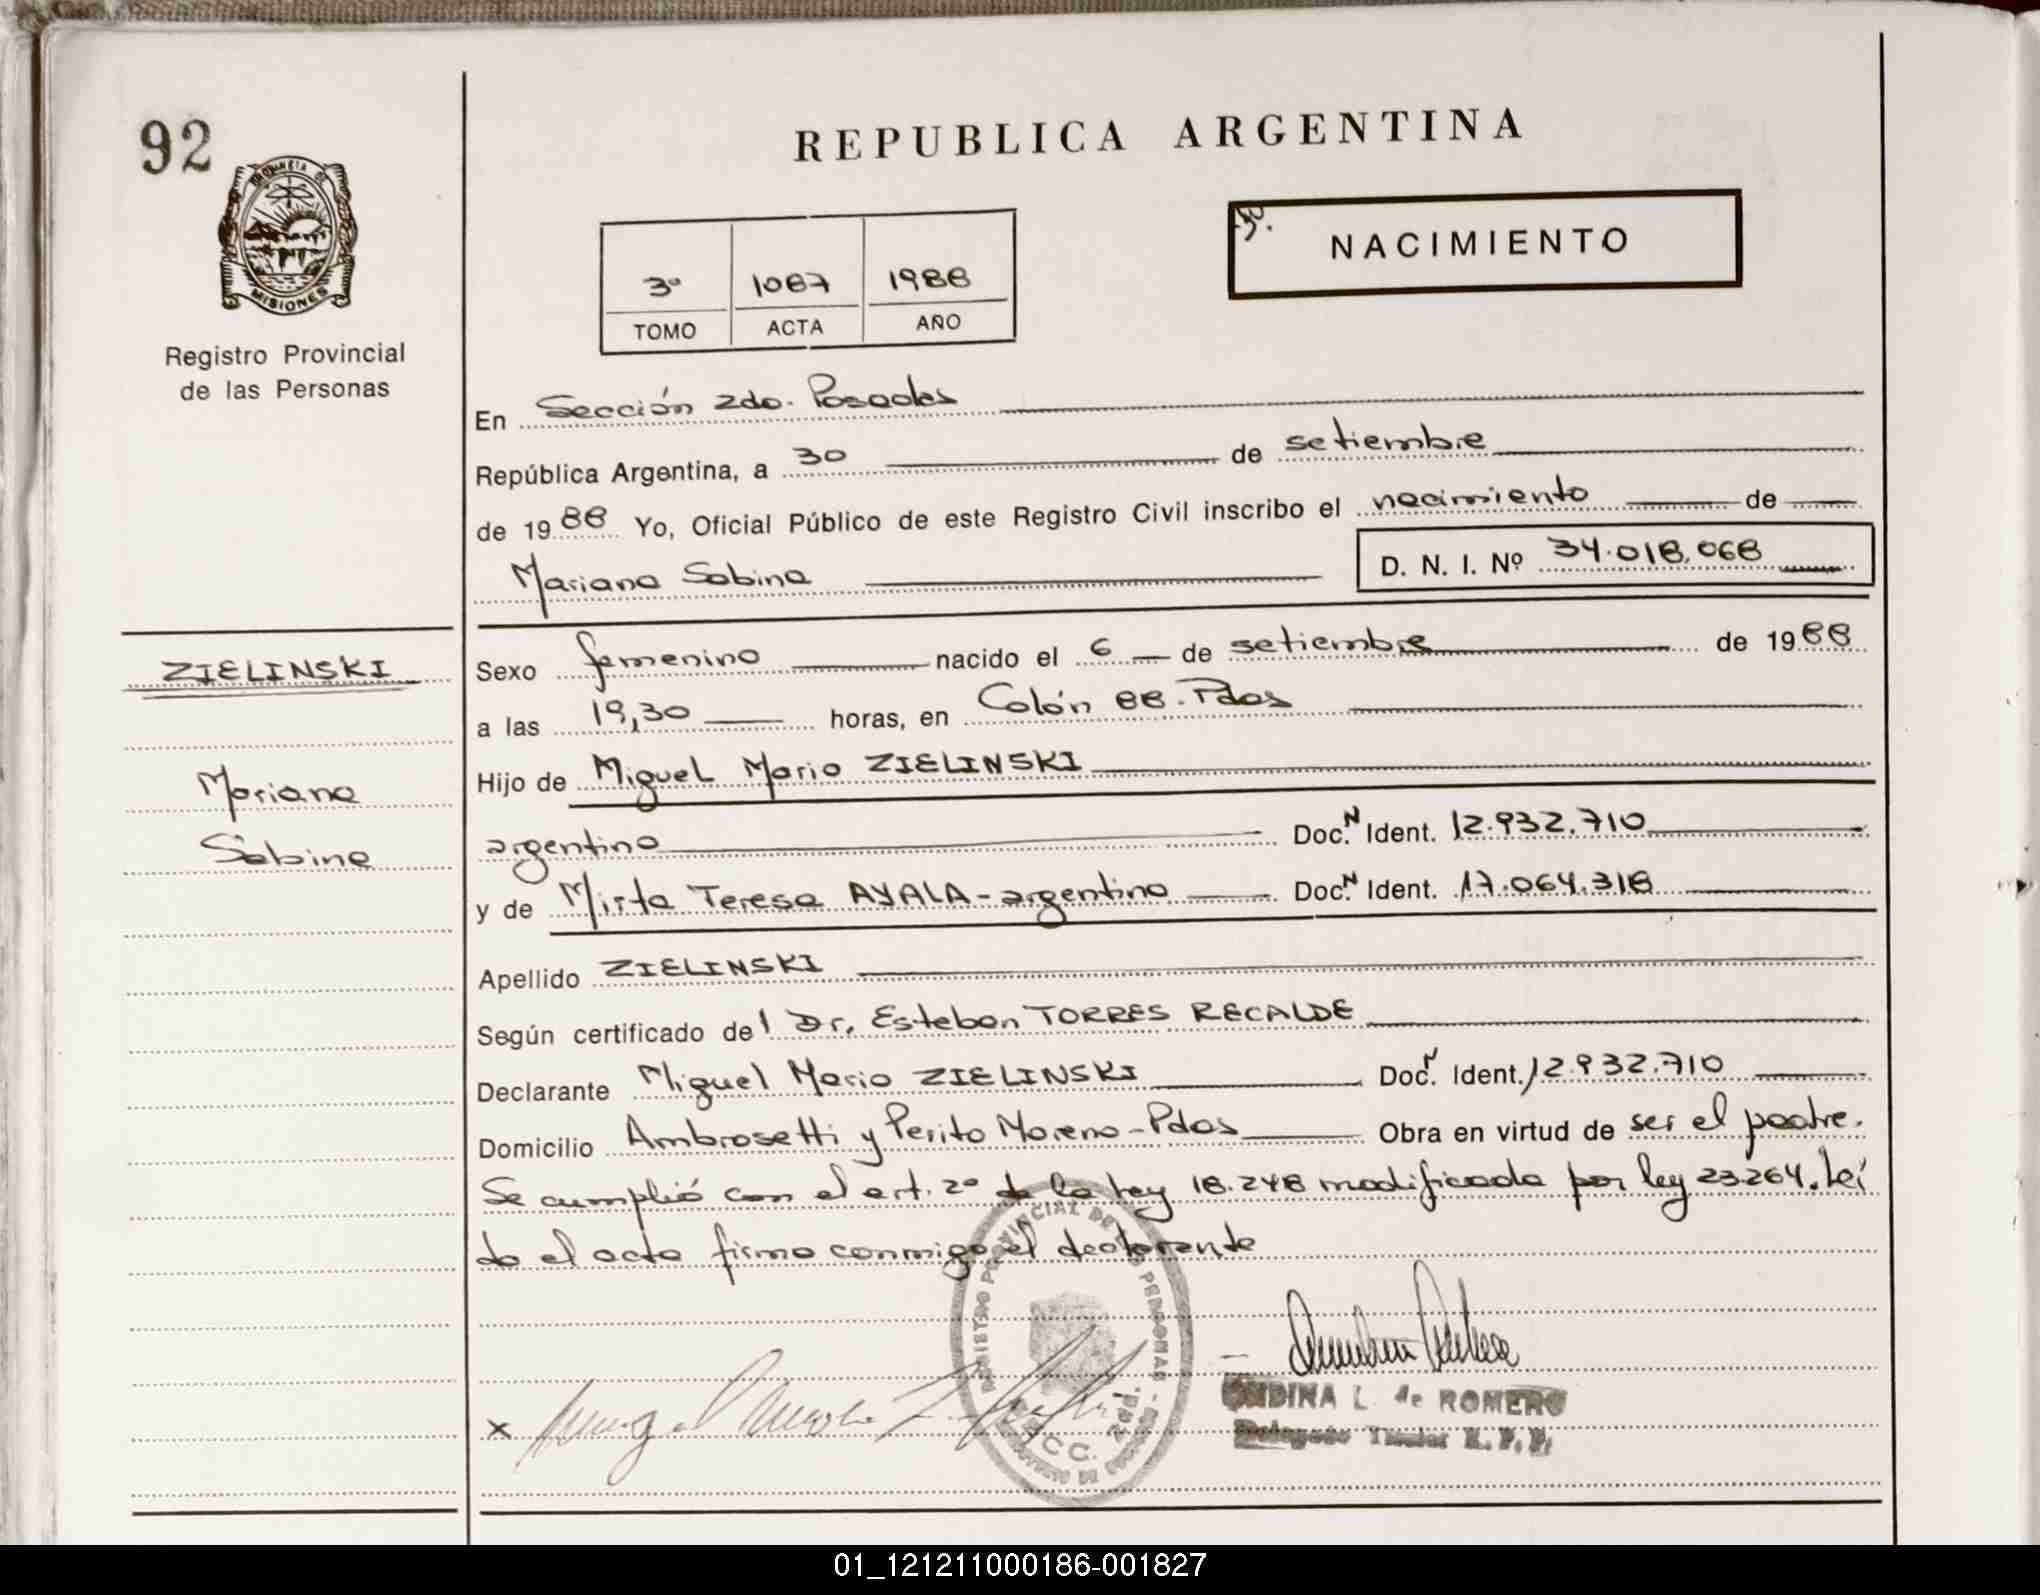 92
REPUBLICA ARGENTINA
PROVINCIA DE
MISIONES
Registro Provincial
de las Personas
3º 1087 1988
TOMO ACTA AÑO
NACIMIENTO
En Sección 2da. Posadas
República Argentina, a 30 de setiembre
de 1988 Yo, Oficial Público de este Registro Civil inscribo el nacimiento de
Mariana Sabina D. N. I. Nº 34.018.068
ZIELINSKI
Mariana
Sabina
Sexo femenino nacido el 6 de setiembre de 1988
a las 19,30 horas, en Colón 88. Pdas
Hijo de Miguel Mario ZIELINSKI
argentino Doc. N Ident. 12.932.710
y de Mirta Teresa AYALA - argentina Doc. N Ident. 17.064.318
Apellido ZIELINSKI
Según certificado del Dr. Esteban TORRES RECALDE
Declarante Miguel Mario ZIELINSKI Doc. N Ident. 12.932.710
Domicilio Ambrosetti y Perito Moreno - Pdas Obra en virtud de ser el padre.
Se cumplió con el art. 2º de la Ley 18.248 modificada por ley 23264. Leí
da el acta firma conmigo el declarante
REGISTRO PROVINCIAL DE LAS PERSONAS
L. de ROMERO
Delegado Titular R. P. P.
x
01_121211000186-001827